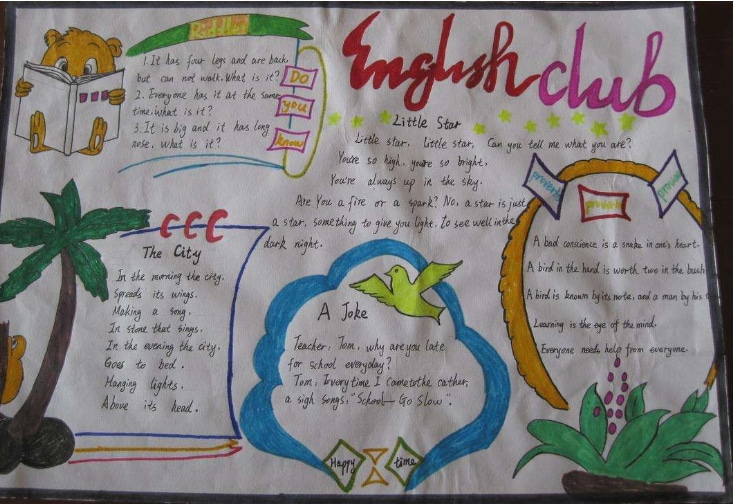 English club
Riddles
1. It has four legs and are back
but can not walk. What is it?
2. Everyone has it at the same
time. what is it?
3. It is big and it has long
nose, what is it?
Do
you
know
Little Star
Little star, Little star, Can you tell me what you are?
You're so high, you're so bright.
You're always up in the sky.
Are You a fire or a spark? No, a star is just
a star, something to give you light. To see well in the
dark night.
The City
In the morning the city.
Spreads its wings.
Making a song.
In stone that sings.
In the evening the city.
Goes to bed.
Hanging lights.
Above its head.
A Joke
Teacher: Tom, why are you late
for school everyday?
Tom: Everytime I came to the cather,
a sigh songs: "School— Go Slow".
Happy
time
proverb
proverb
A bad conscience is a snake in one's heart.
A bird in the hand is worth two in the bush
A bird is known by its note, and a man by his
Learning is the eye of the mind.
Everyone needs help from everyone.